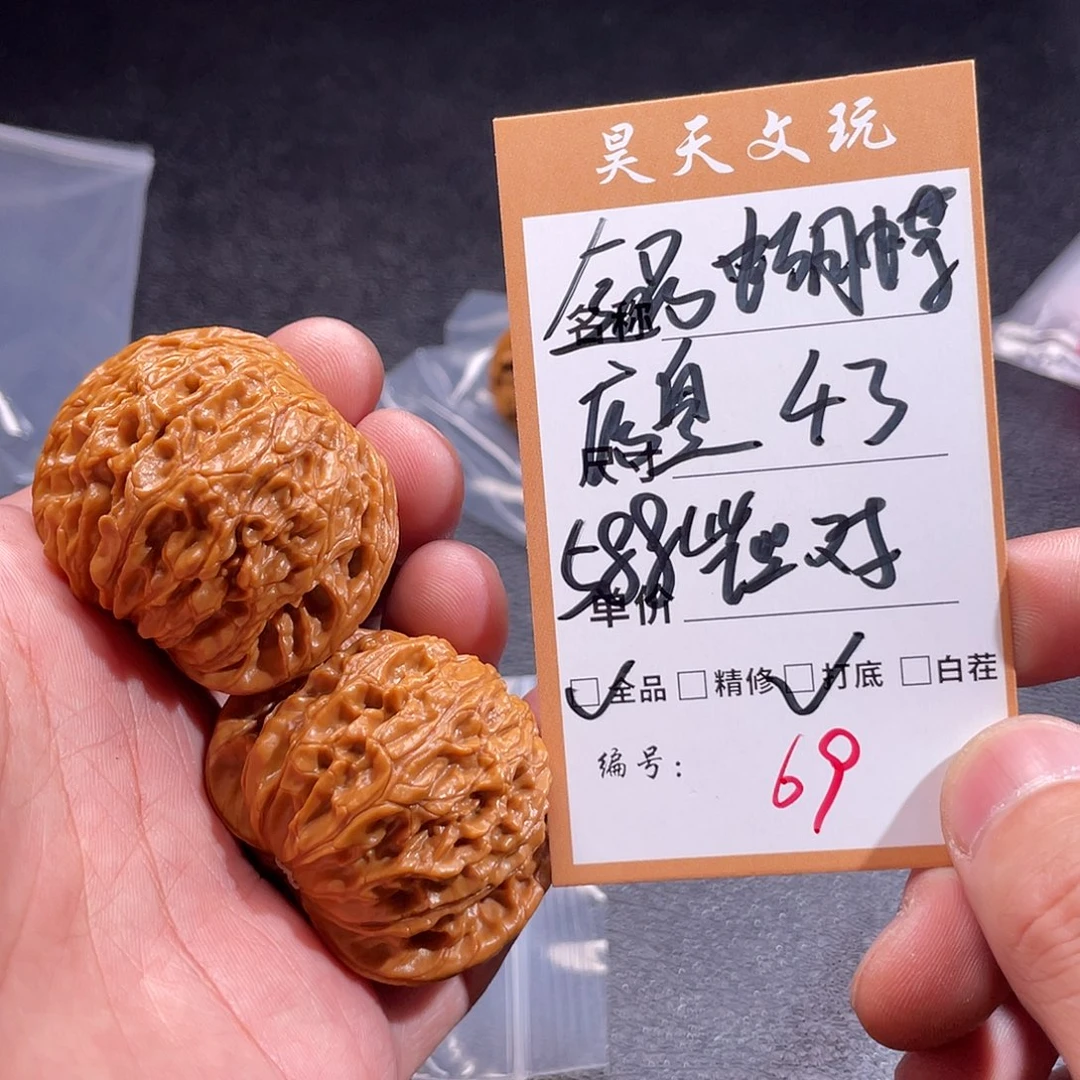 昊天文玩
名称 全品蝴蝶
尺寸 底宽 43
单价 588 一对
全品 精修 打底 白茬
编号： 69